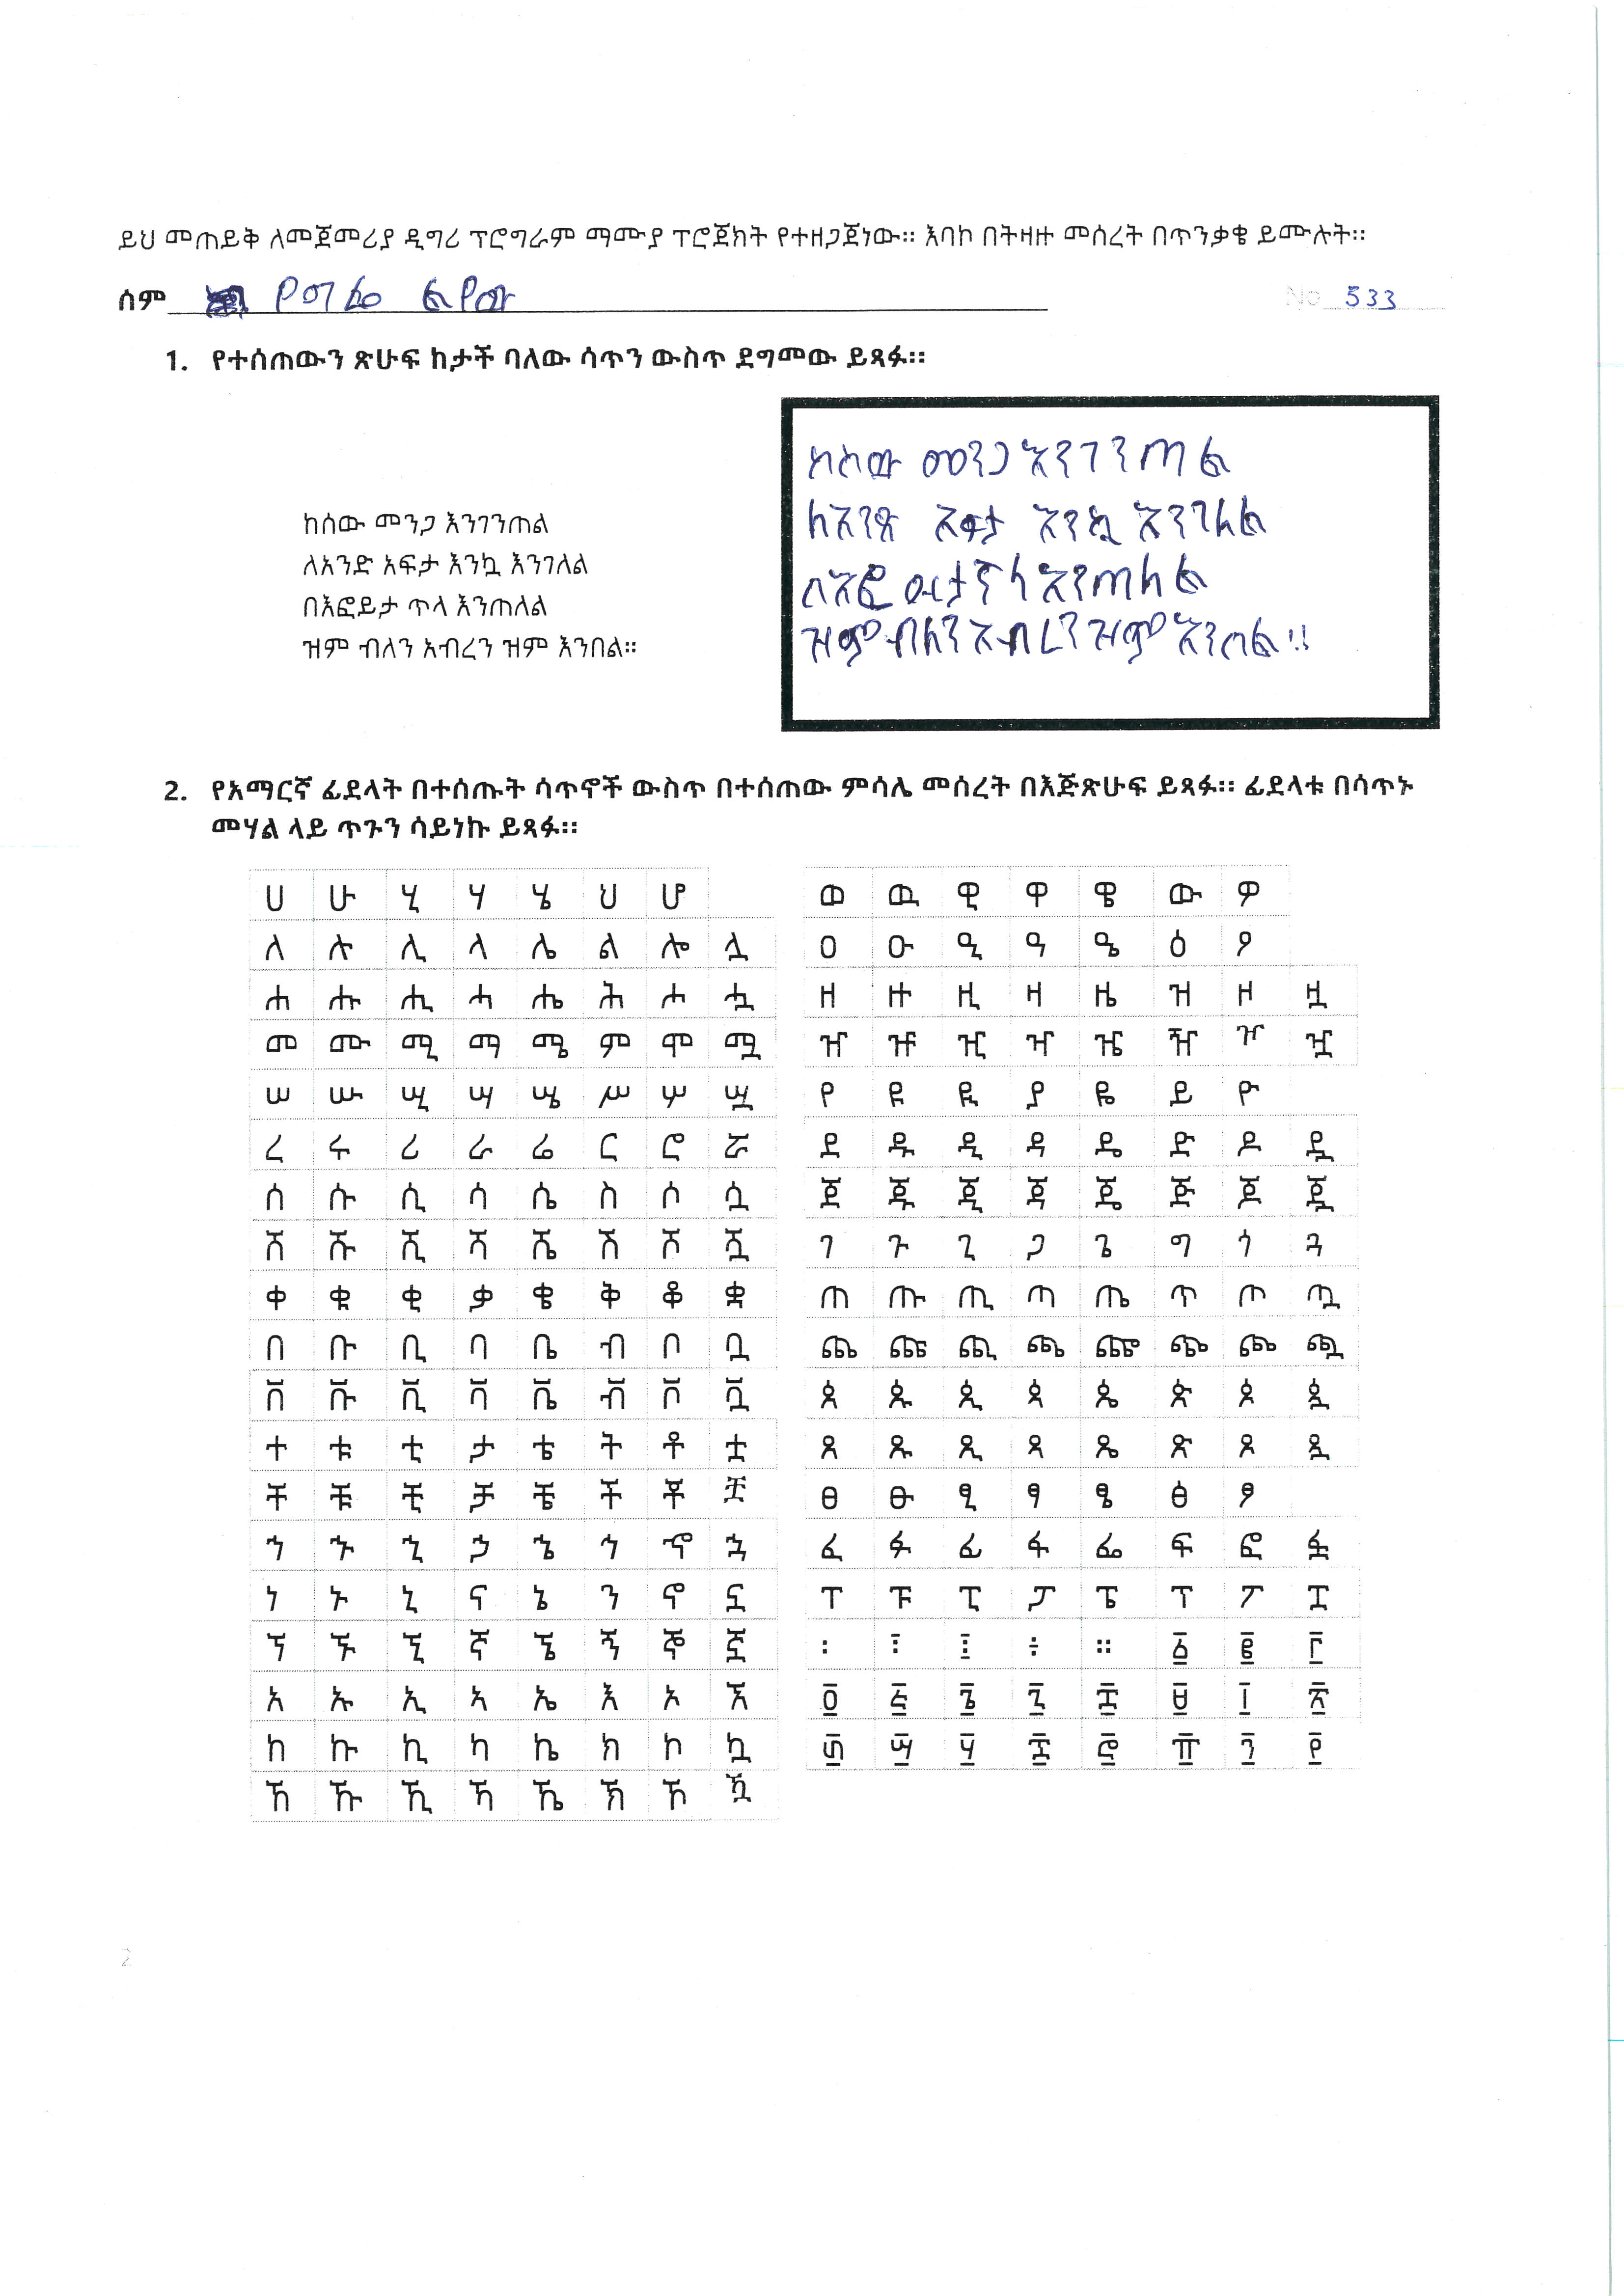 ይህ መጠይቅ ለመጀመሪያ ዲግሪ ፕሮግራም ማሙያ ፕሮጀክት የተዘጋጀነው። እባኮ በትዛዙ መሰረት በጥንቃቄ ይሙሉት።
ስም
No 533
1. የተሰጠውን ጽሁፍ ከታች ባለው ሳጥን ውስጥ ደግመው ይጻፉ።
ከሰው መንጋ እንገንጠል
ለአንድ አፍታ እንኳ እንገለል
በእፎይታ ጥላ እንጠለል
ዝም ብለን አብረን ዝም እንበል።
ከስው መንጋ እንገንጠል
ለአንድ አፍታ እንኳ እንገለል
እንጠለል
ዝም ብለን አብረን ዝም እንበል።
2. የአማርኛ ፊደላት በተሰጡት ሳጥኖች ውስጥ በተሰጠው ምሳሌ መሰረት በእጅጽሁፍ ይጻፉ። ፊደላቱ በሳጥኑ
መሃል ላይ ጥጉን ሳይነኩ ይጻፉ።
ሀ ሁ ሂ ሃ ሄ ህ ሆ
ለ ሉ ሊ ላ ሌ ል ሎ ሏ
ሐ ሑ ሒ ሓ ሔ ሕ ሖ ሗ
መ ሙ ሚ ማ ሜ ም ሞ ሟ
ሠ ሡ ሢ ሣ ሤ ሥ ሦ ሧ
ረ ሩ ሪ ራ ሬ ር ሮ ሯ
ሰ ሱ ሲ ሳ ሴ ስ ሶ ሷ
ሸ ሹ ሺ ሻ ሼ ሽ ሾ ሿ
ቀ ቁ ቂ ቃ ቄ ቅ ቆ ቋ
በ ቡ ቢ ባ ቤ ብ ቦ ቧ
ቨ ቩ ቪ ቫ ቬ ቭ ቮ ቯ
ተ ቱ ቲ ታ ቴ ት ቶ ቷ
ቸ ቹ ቺ ቻ ቼ ች ቾ ቿ
ኀ ኁ ኂ ኃ ኄ ኅ ኆ ኋ
ነ ኑ ኒ ና ኔ ን ኖ ኗ
ኘ ኙ ኚ ኛ ኜ ኝ ኞ ኟ
አ ኡ ኢ ኣ ኤ እ ኦ ኧ
ከ ኩ ኪ ካ ኬ ክ ኮ ኳ
ኸ ኹ ኺ ኻ ኼ ኽ ኾ ዃ
ወ ዉ ዊ ዋ ዌ ው ዎ
ዐ ዑ ዒ ዓ ዔ ዕ ዖ
ዘ ዙ ዚ ዛ ዜ ዝ ዞ ዟ
ዠ ዡ ዢ ዣ ዤ ዥ ዦ ዧ
የ ዩ ዪ ያ ዬ ይ ዮ
ደ ዱ ዲ ዳ ዴ ድ ዶ ዷ
ጀ ጁ ጂ ጃ ጄ ጅ ጆ ጇ
ገ ጉ ጊ ጋ ጌ ግ ጎ ጓ
ጠ ጡ ጢ ጣ ጤ ጥ ጦ ጧ
ጨ ጩ ጪ ጫ ጬ ጭ ጮ ጯ
ጰ ጱ ጲ ጳ ጴ ጵ ጶ ጷ
ጸ ጹ ጺ ጻ ጼ ጽ ጾ ጿ
ፀ ፁ ፂ ፃ ፄ ፅ ፆ
ፈ ፉ ፊ ፋ ፌ ፍ ፎ ፏ
ፐ ፑ ፒ ፓ ፔ ፕ ፖ ፗ
፡ ፣ ፤ ÷ ። ፩ ፪ ፫
፬ ፭ ፮ ፯ ፰ ፱ ፲ ፳
፴ ፵ ፶ ፷ ፸ ፹ ፺ ፻
2